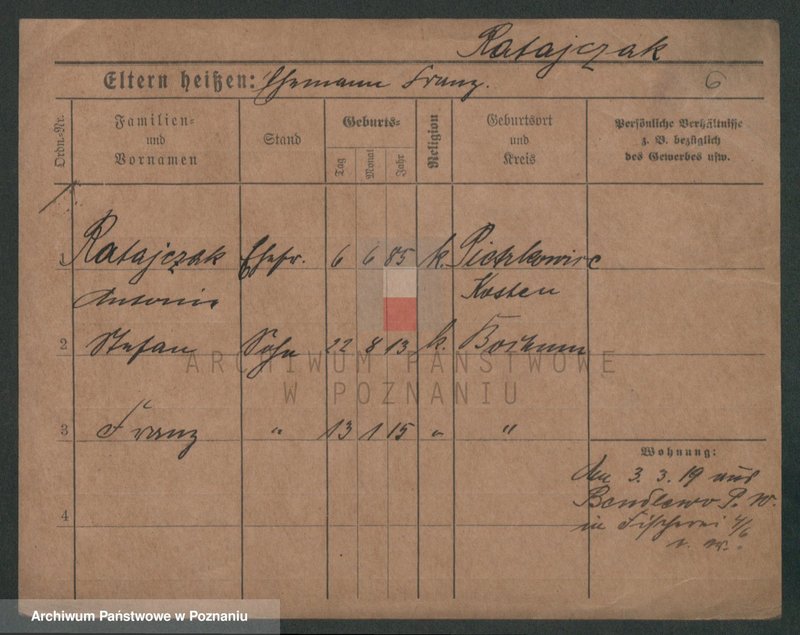 Ratajczak
Eltern heißen: Ehemann Franz.
6
Ordn.-Nr.
Familien-
und
Vornamen
Stand
Geburts-
Tag
Monat
Jahr
Religion
Geburtsort
und
Kreis
Persönliche Verhältnisse
z. B. bezüglich
des Gewerbes usw.
1 Ratajczak Ehefr. 6 6 85 k. Piotrkowice
Antonie Kosten
2 Stefan Sohn 22 8 13 k. Bochum
ARCHIWUM PAŃSTWOWE
W POZNANIU
3 Franz " 13 1 15 " "
Wohnung:
den 3. 3. 19 aus
Bendlewo P. W.
in Fischerei 4/6
4
Archiwum Państwowe w Poznaniu